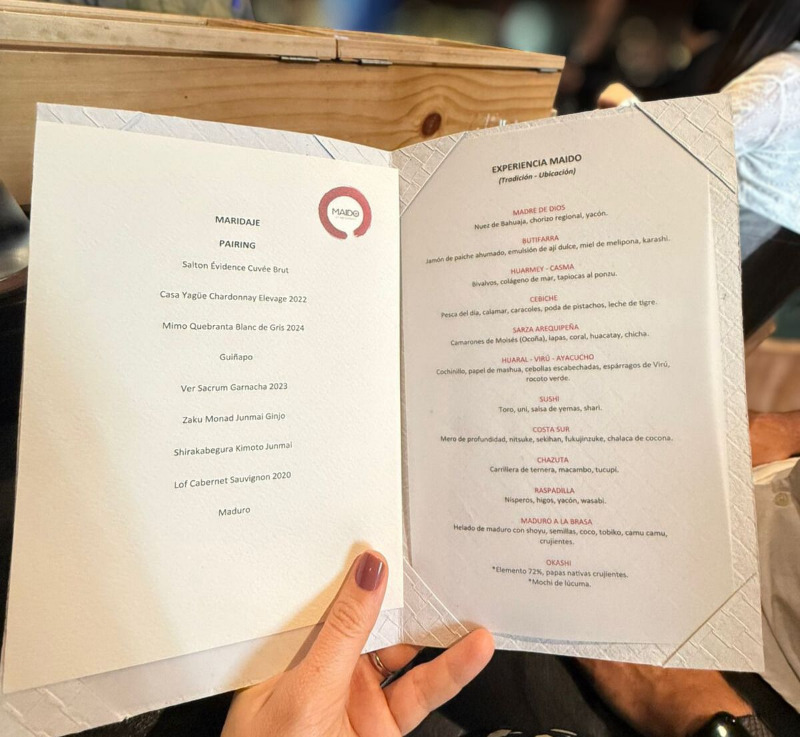 MAIDO
MARIDAJE
PAIRING
Salton Évidence Cuvée Brut
Casa Yagüe Chardonnay Elevage 2022
Mimo Quebranta Blanc de Gris 2024
Guiñapo
Ver Sacrum Garnacha 2023
Zaku Monad Junmai Ginjo
Shirakabegura Kimoto Junmai
Lof Cabernet Sauvignon 2020
Maduro
EXPERIENCIA MAIDO
(Tradición - Ubicación)
MADRE DE DIOS
Nuez de Bahuaja, chorizo regional, yacón.
BUTIFARRA
Jamón de paiche ahumado, emulsión de ají dulce, miel de melipona, karashi.
HUARMEY - CASMA
Bivalvos, colágeno de mar, tapiocas al ponzu.
CEBICHE
Pesca del día, calamar, caracoles, poda de pistachos, leche de tigre.
SARZA AREQUIPEÑA
Camarones de Moisés (Ocoña), lapas, coral, huacatay, chicha.
HUARAL - VIRÚ - AYACUCHO
Cochinillo, papel de mashua, cebollas escabechadas, espárragos de Virú,
rocoto verde.
SUSHI
Toro, uni, salsa de yemas, shari.
COSTA SUR
Mero de profundidad, nitsuke, sekihan, fukujinzuke, chalaca de cocona.
CHAZUTA
Carrillera de ternera, macambo, tucupí.
RASPADILLA
Nísperos, higos, yacón, wasabi.
MADURO A LA BRASA
Helado de maduro con shoyu, semillas, coco, tobiko, camu camu,
crujientes.
OKASHI
*Elemento 72%, papas nativas crujientes.
*Mochi de lúcuma.